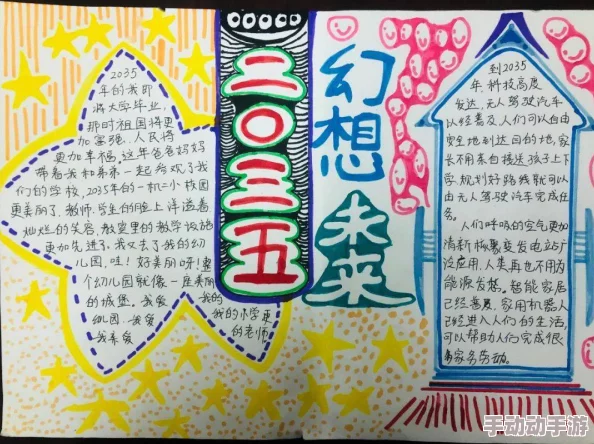 2035
年的我即
将大学毕业,
那时祖国将更
加富强,人民将
更加幸福,这年爸爸妈妈
带着我和弟弟一起参观了我
们的学校,2035年的一机二小校园
更美丽了,教师、学生的脸上洋溢着
灿烂的笑容,教室里的教学设施
更加先进了,我又去了我的幼
儿园,哇!好美丽呀!整
个幼儿园就像一座美丽
的城堡。我爱我的
幼儿园,我爱我的小学更
我喜爱的老师
二〇三五
幻想
未来
到2035
年,科技高度
发达,无人驾驶汽车
以经普及人们可以自由
安全地到达目的地,家
长不用亲自接送孩子上下
学,规划好路线就可以
由无人驾驶汽车完成任
务。
人们呼吸的空气更加
清新核聚变发电站广
泛应用,人类再也不用为
能源发愁。智能家居
已经普及,家用机器人
已经进入人们的生活,
可以帮助人们完成很
多家务劳动。
手动动手游